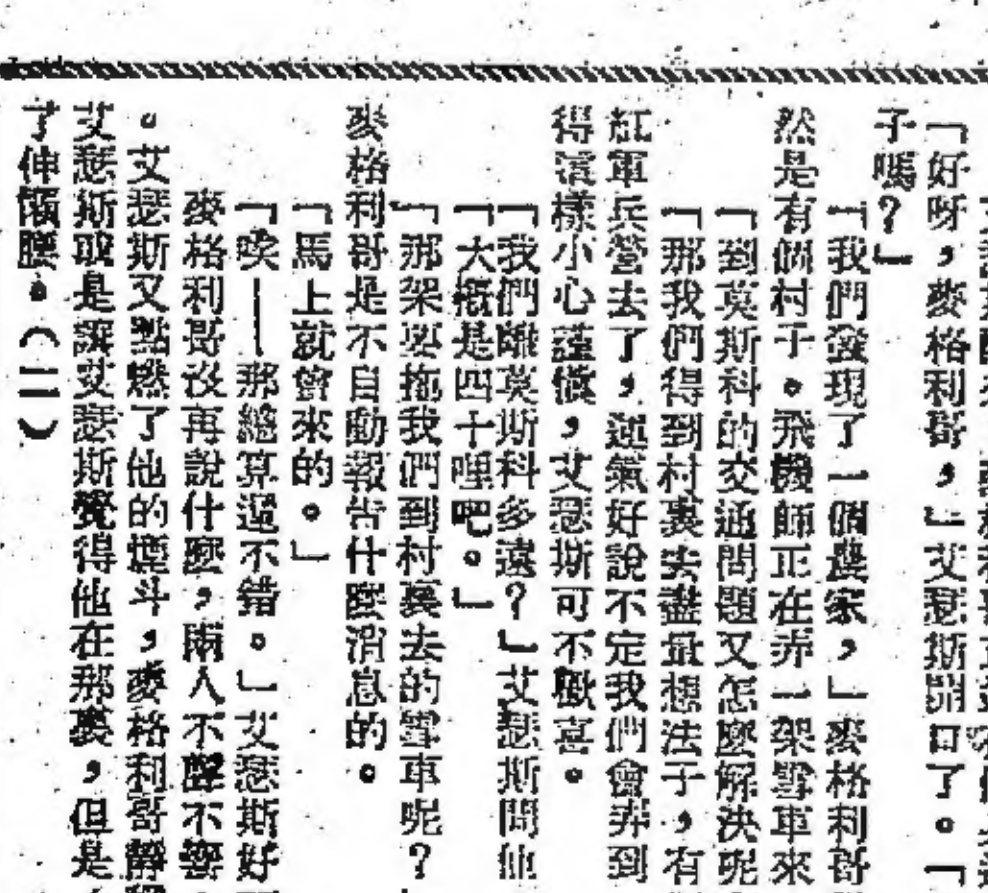 「好呀，麥格利哥，」艾瑟斯開口了。「
子嗎？」
「我們發現了一個農家，」麥格利哥
然是有個村子。飛機師正在弄一架雪車來
「到莫斯科的交通問題又怎麼解決呢
「那我們得到村裏去盡量想法子，有
紅軍兵營去了，運氣好說不定我們會弄到
得這樣小心謹慎，艾瑟斯可不歡喜。
「我們離莫斯科多遠？」艾瑟斯問他
「大概是四十哩吧。」
「那架要拖我們到村裏去的雪車呢？
麥格利哥是不自動報告什麼消息的。
「馬上就會來的。」
「唉——那總算還不錯。」艾瑟斯好
麥格利哥沒再說什麼，兩人不聲不響
。艾瑟斯又點燃了他的煙斗，麥格利哥靜
艾瑟斯或是讓艾瑟斯覺得他在那裏，但是
了伸懶腰。（二）